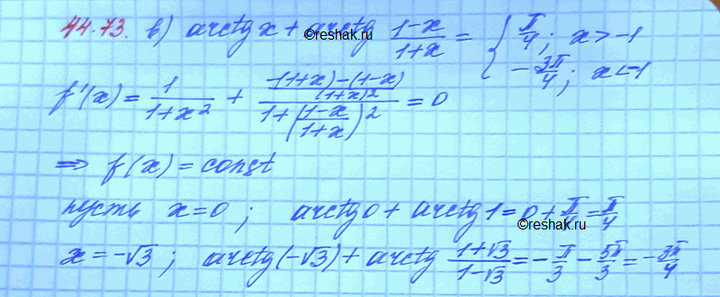 44.73. в) arctg x + arctg (1-x)/(1+x) = { π/4; x > -1
-3π/4; x < -1
f'(x) = 1/(1+x²) + ((11+x)-(1-x)/(1+x)²)/(1+((1-x)/(1+x))²) = 0
⇒ f(x) = const
пусть x=0; arctg 0 + arctg 1 = 0 + π/4 = π/4
x = -√3; arctg(-√3) + arctg (1+√3)/(1-√3) = -π/3 - 5π/3 = -3π/4
©reshak.ru
©reshak.ru